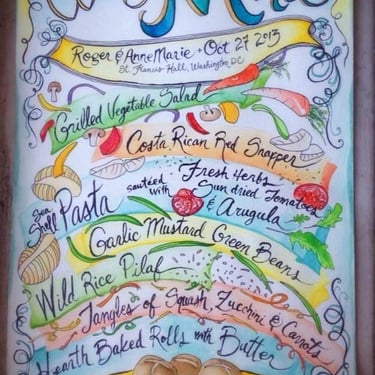 Roger & AnneMarie • Oct 27 2013
St. Francis Hall, Washington, DC
Grilled Vegetable Salad
Costa Rican Red Snapper
Sea Shell Pasta sautéed with Fresh Herbs
Sun dried Tomatoes
& Arugula
Garlic Mustard Green Beans
Wild Rice Pilaf
Tangles of Squash, Zucchini & Carrots
Hearth Baked Rolls with Butter